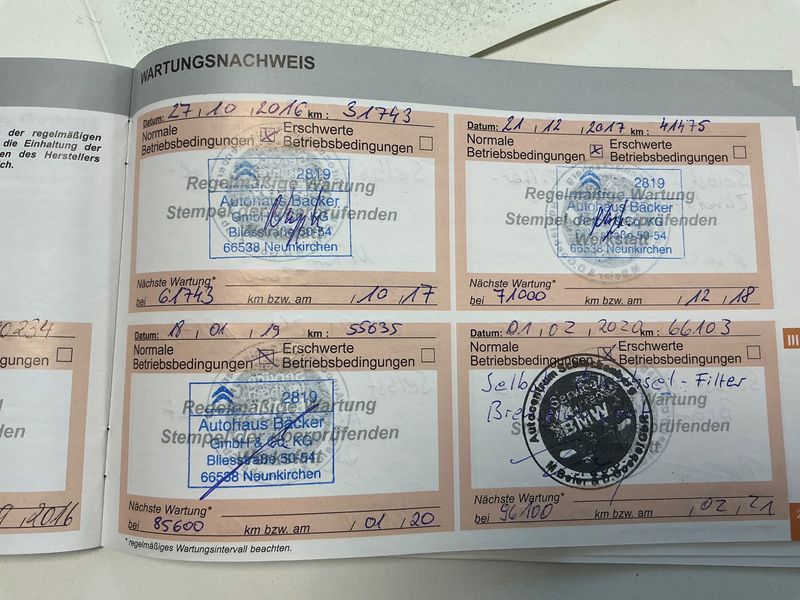 WARTUNGSNACHWEIS
der regelmäßigen
die Einhaltung der
en des Herstellers
ch.
Datum: 27, 10, 2016 km: 31743
Normale Betriebsbedingungen
Erschwerte Betriebsbedingungen
Regelmäßige Wartung
Stempel der überprüfenden
Werkstatt
2819
Autohaus Bäcker
GmbH & Co. KG
Bliesstraße 50-54
66538 Neunkirchen
Nächste Wartung*
bei 61743 km bzw. am , 10 , 17
Datum: 21, 12, 2017 km: 41475
Normale Betriebsbedingungen
Erschwerte Betriebsbedingungen
Regelmäßige Wartung
Stempel der überprüfenden
Werkstatt
2819
Autohaus Bäcker
Co. KG
aße 50-54
66538 Neunkirchen
Nächste Wartung*
bei 71000 km bzw. am , 12 , 18
0234
gungen
, 2016
Datum: 18, 01, 19 km: 55635
Normale Betriebsbedingungen
Erschwerte Betriebsbedingungen
Regelmäßige Wartung
Stempel der überprüfenden
Werkstatt
2819
Autohaus Bäcker
GmbH & Co. KG
Bliesstraße 50-54
66538 Neunkirchen
Nächste Wartung*
bei 85600 km bzw. am , 01 , 20
Datum: 01, 02, 2020 km: 66103
Normale Betriebsbedingungen
Erschwerte Betriebsbedingungen
Filter
BMW
Nächste Wartung*
bei 96100 km bzw. am , 02 , 21
* regelmäßiges Wartungsintervall beachten.
III